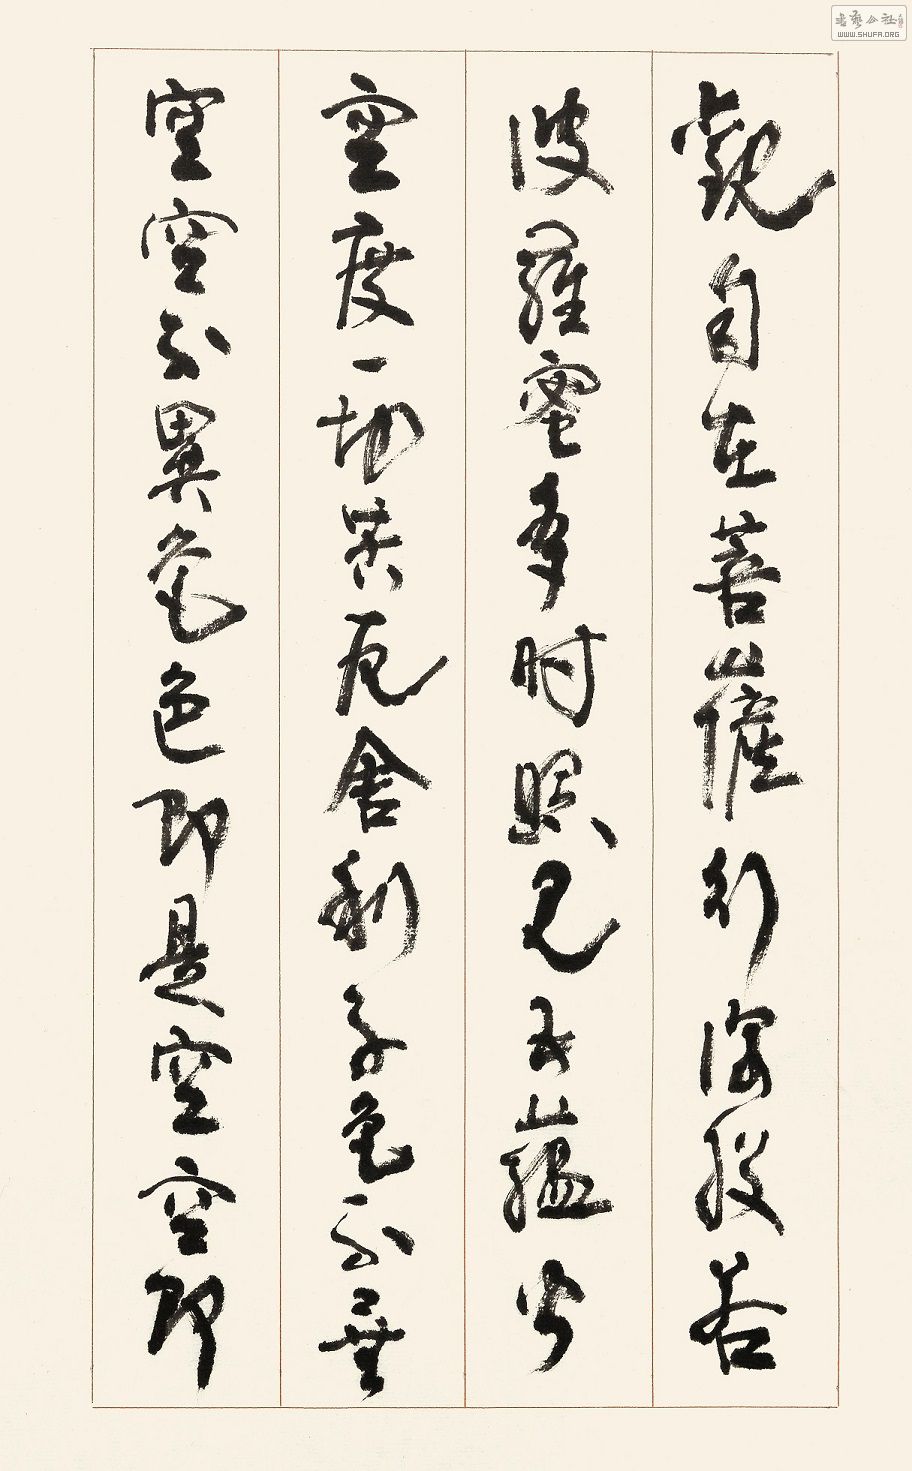 觀自在菩薩行深般若
波羅蜜多时照見五蘊皆
空度一切苦厄舍利子色不異
空空不異色色即是空空即
書藝公社
WWW.SHUFA.ORG